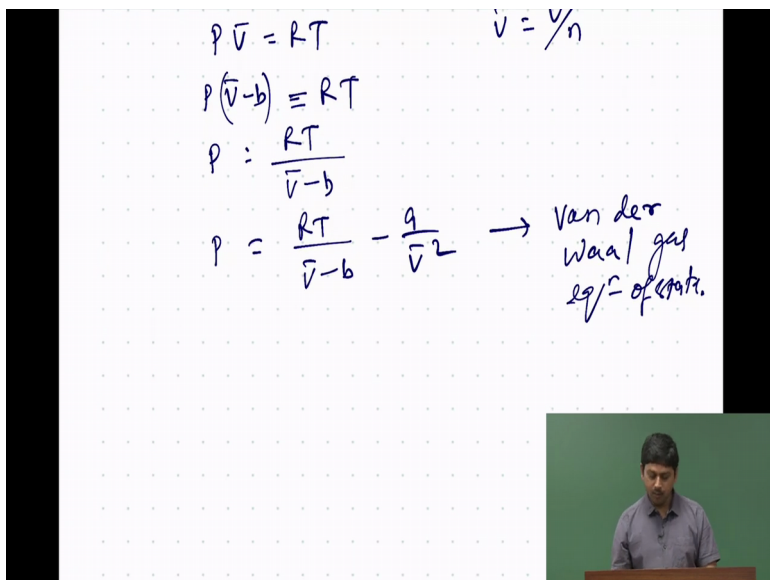 P V̄ = RT
V̄ = V/n
P(V̄-b) = RT
P = RT / V̄-b
P = RT / V̄-b - a / V̄² → Van der
Waal gas
eqⁿ of state.